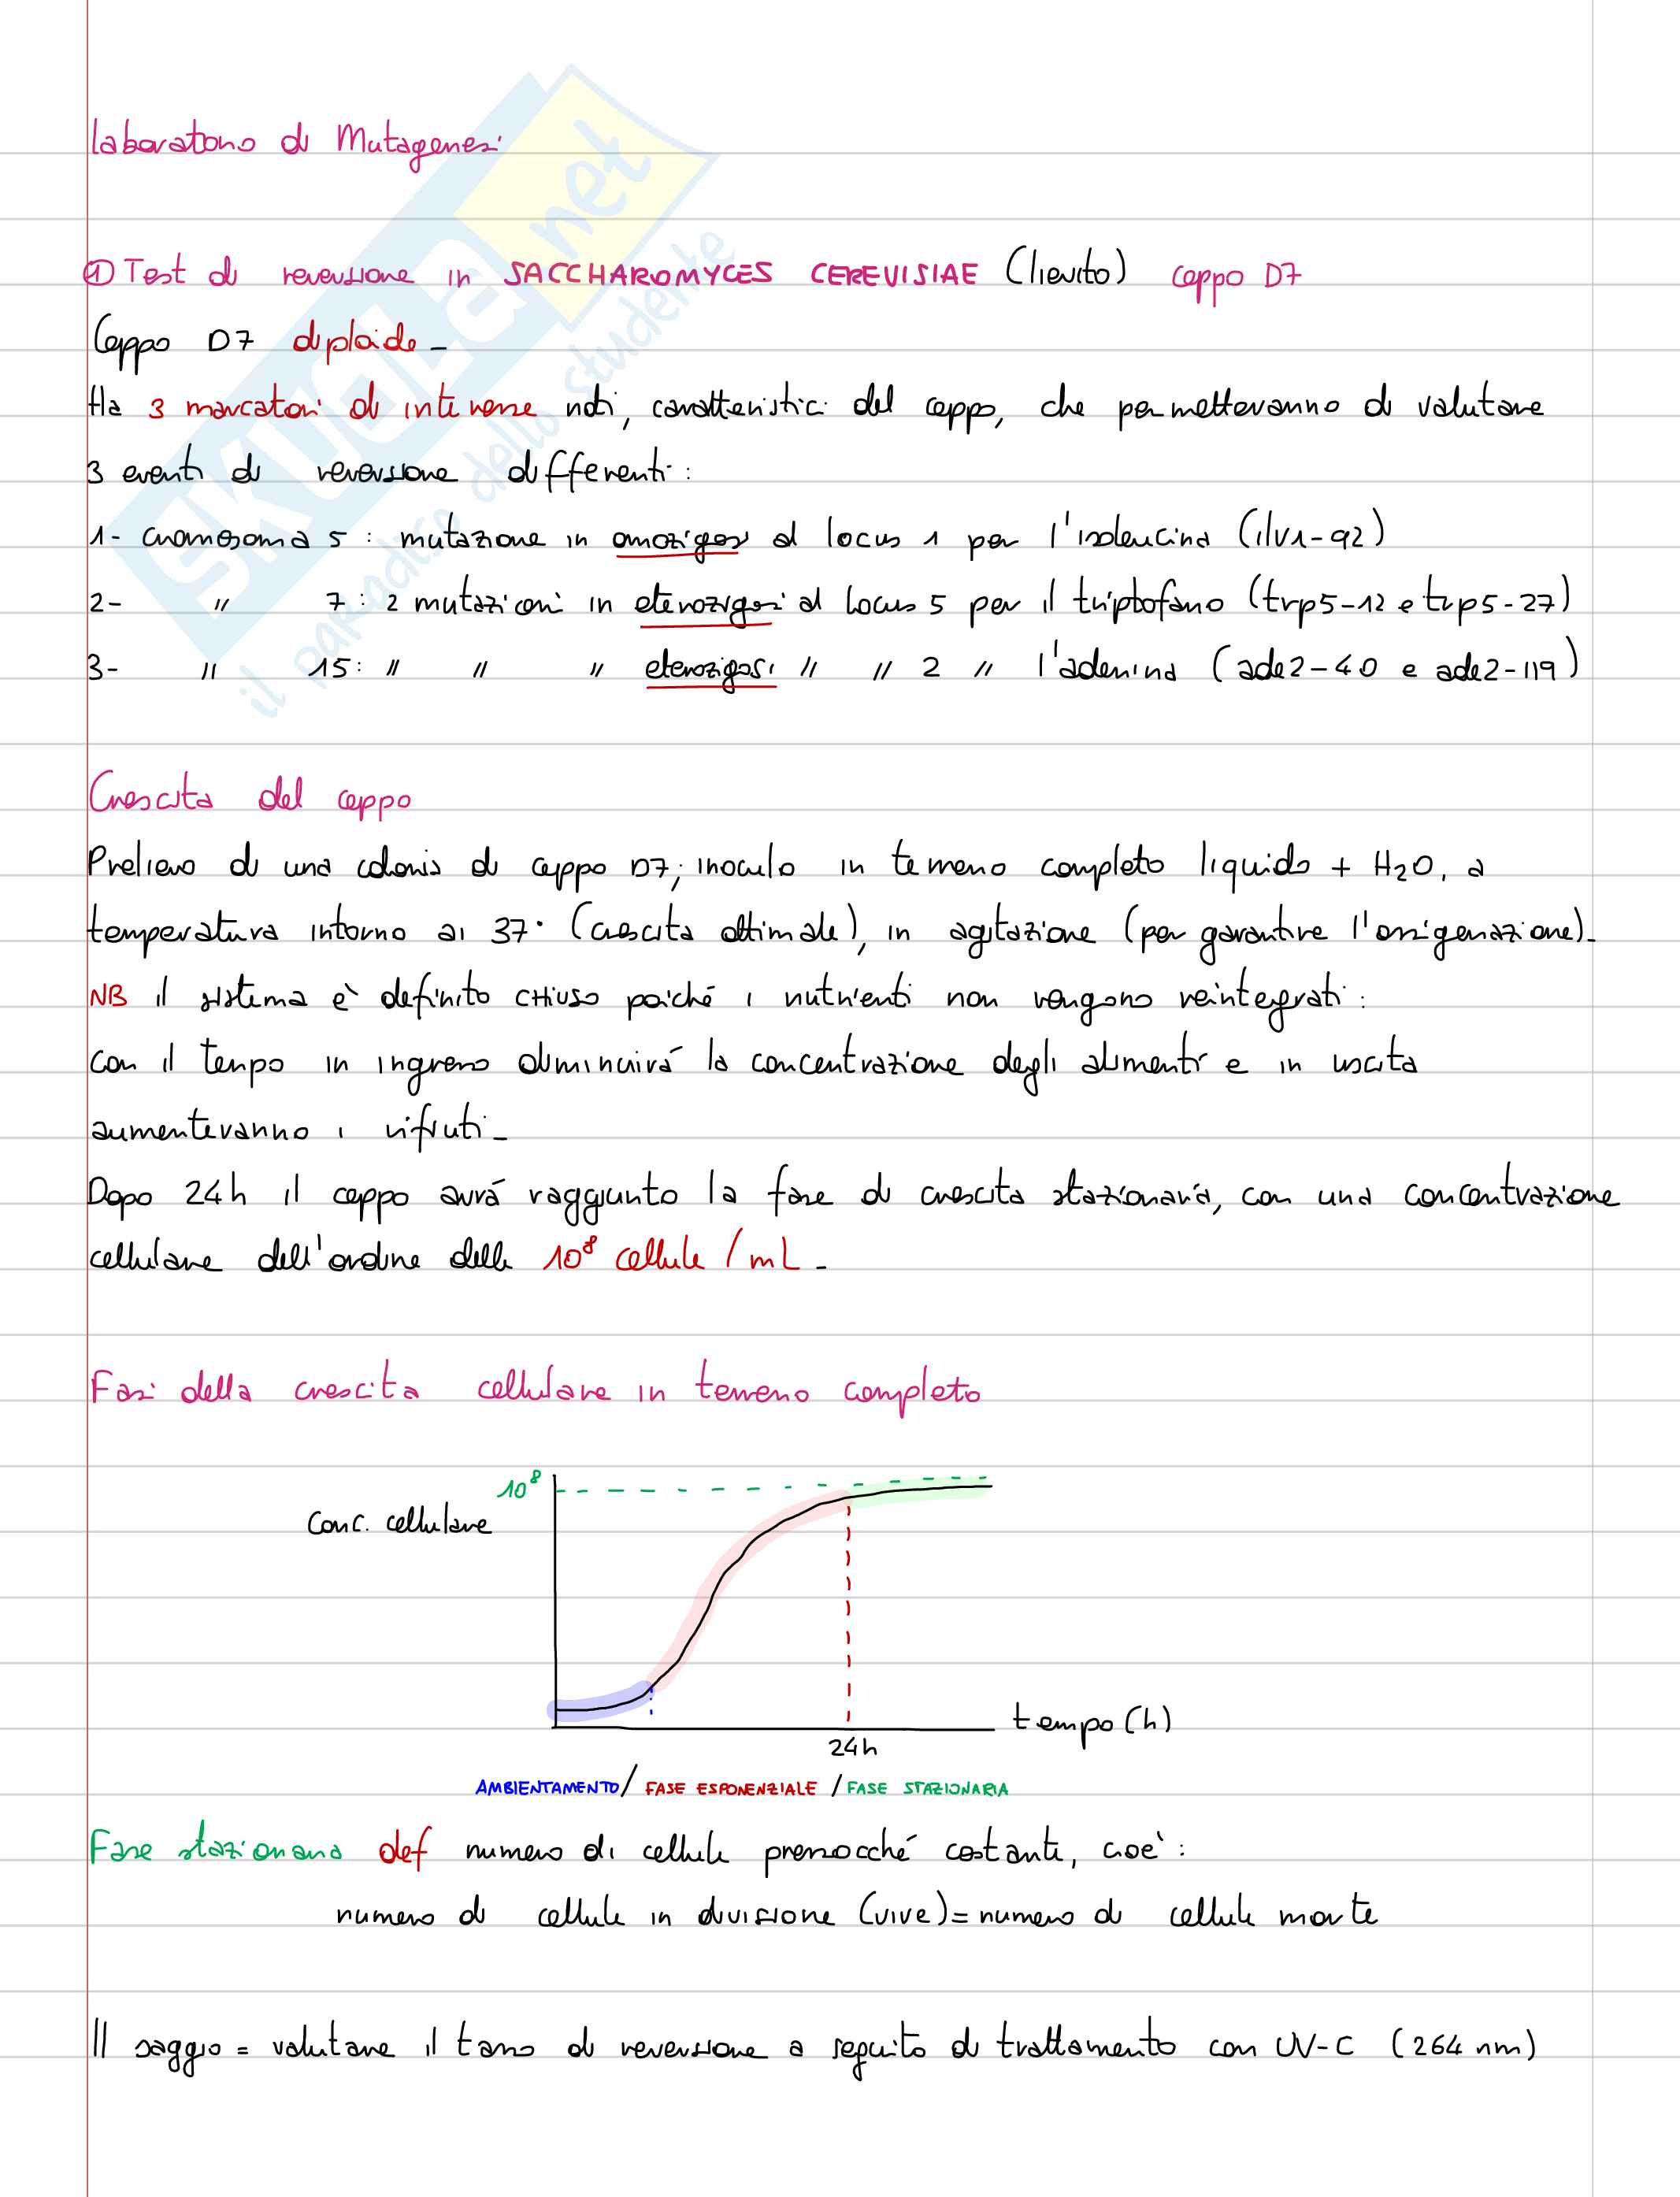 Laboratorio di Mutagenesi
① Test di reversione in SACCHAROMYCES CEREVISIAE (lievito) ceppo D7
Ceppo D7 diploide -
Ha 3 marcatori di interesse noti, caratteristici del ceppo, che permetteranno di valutare
3 eventi di reversione differenti:
1- cromosoma 5 : mutazione in omozigosi al locus 1 per l'isoleucina (ilv1-92)
2- " 7 : 2 mutazioni in eterozigosi al locus 5 per il triptofano (trp5-12 e trp5-27)
3- " 15 : " " " eterozigosi " " 2 " l'adenina (ade2-40 e ade2-119)
Crescita del ceppo
Prelievo di una colonia di ceppo D7; inoculo in terreno completo liquido + H2O, a
temperatura intorno ai 37° (crescita ottimale), in agitazione (per garantire l'ossigenazione)-
NB il sistema è definito CHIUSO poiché i nutrienti non vengono reintegrati:
con il tempo in ingresso diminuirà la concentrazione degli alimenti e in uscita
aumenteranno i rifiuti-
Dopo 24h il ceppo avrà raggiunto la fase di crescita stazionaria, con una concentrazione
cellulare dell'ordine delle 10⁸ cellule / mL -
Fasi della crescita cellulare in terreno completo
10⁸
Conc. cellulare
tempo (h)
24h
AMBIENTAMENTO / FASE ESPONENZIALE / FASE STAZIONARIA
Fase stazionaria def numero di cellule pressocché costante, cioè:
numero di cellule in divisione (vive) = numero di cellule morte
Il saggio = valutare il tasso di reversione a seguito di trattamento con UV-C (264 nm)
SKUOLa.net
il paradiso dello studente